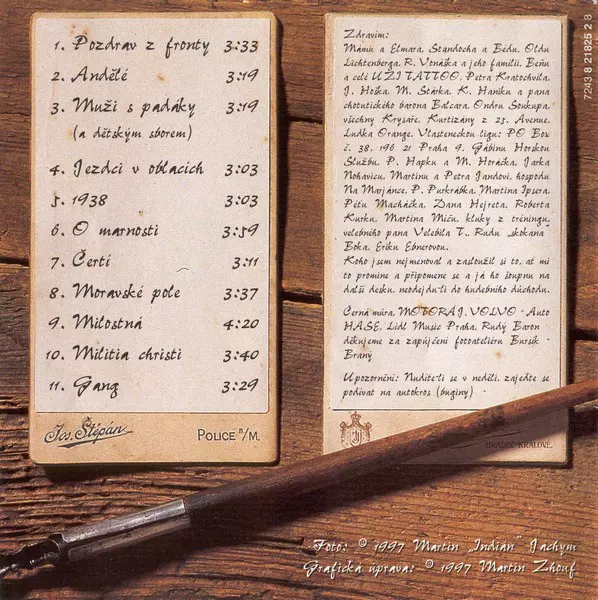 1. Pozdrav z fronty 3:33
2. Andělé 3:19
3. Muži s padáky 3:19
(a dětským sborem)
4. Jezdci v oblacích 3:03
5. 1938 3:03
6. O marnosti 3:59
7. Čerti 3:11
8. Moravské pole 3:37
9. Milostná 4:20
10. Militia christi 3:40
11. Gang 3:29
Jos. Štěpán
POLICE n/M.
Zdravím:
Mámu a Elmara, Standocha a Bédu, Oldu
Lichtenberga, R. Vonáška a jeho familii, Beňu
a celé U.Z.I.TATTOO, Petra Kratochvíla,
J. Hoška, M. Stárka, K. Haniku a pana
chotutického barona Balcara, Ondru Soukupa,
všechny Krysaře, Kurtizány z 25. Avenue,
Ludka Orange, Vlasteneckou ligu: PO Box
č. 38, 196 21 Praha 9, Gábinu Horskou
Službu, P. Hapku a M. Horáčka, Jarka
Nohavicu, Martinu a Petra Jandovi, hospodu
Na Marjánce, P. Purkrábka, Martina Ipsera,
Péťu Macháčka, Dana Hejreta, Roberta
Kurku, Martina Miču, kluky z tréningu,
velebného pana Velebila T., Rudu „skokana"
Boka, Eriku Ebnerovou.
Koho jsem nejmenoval a zasloužil si to, ať mi
to promine a připomene se a já ho šoupnu na
další desku, neodejdu-li do hudebního důchodu.
Černá můra, MOTORAJ, VOLVO - Auto
HASE, Lidl Music Praha, Rudý Baron
děkujeme za zapůjčení fotoateliéru Bursík -
Braný
Upozornění: Nudíte-li se v neděli, zajeďte se
podívat na autokros (buginy)
HRADEC KRÁLOVÉ.
7243 8 21825 2 8
Foto: © 1997 Martin „Indián" Jáchym
Grafická úprava: © 1997 Martin Zhouf